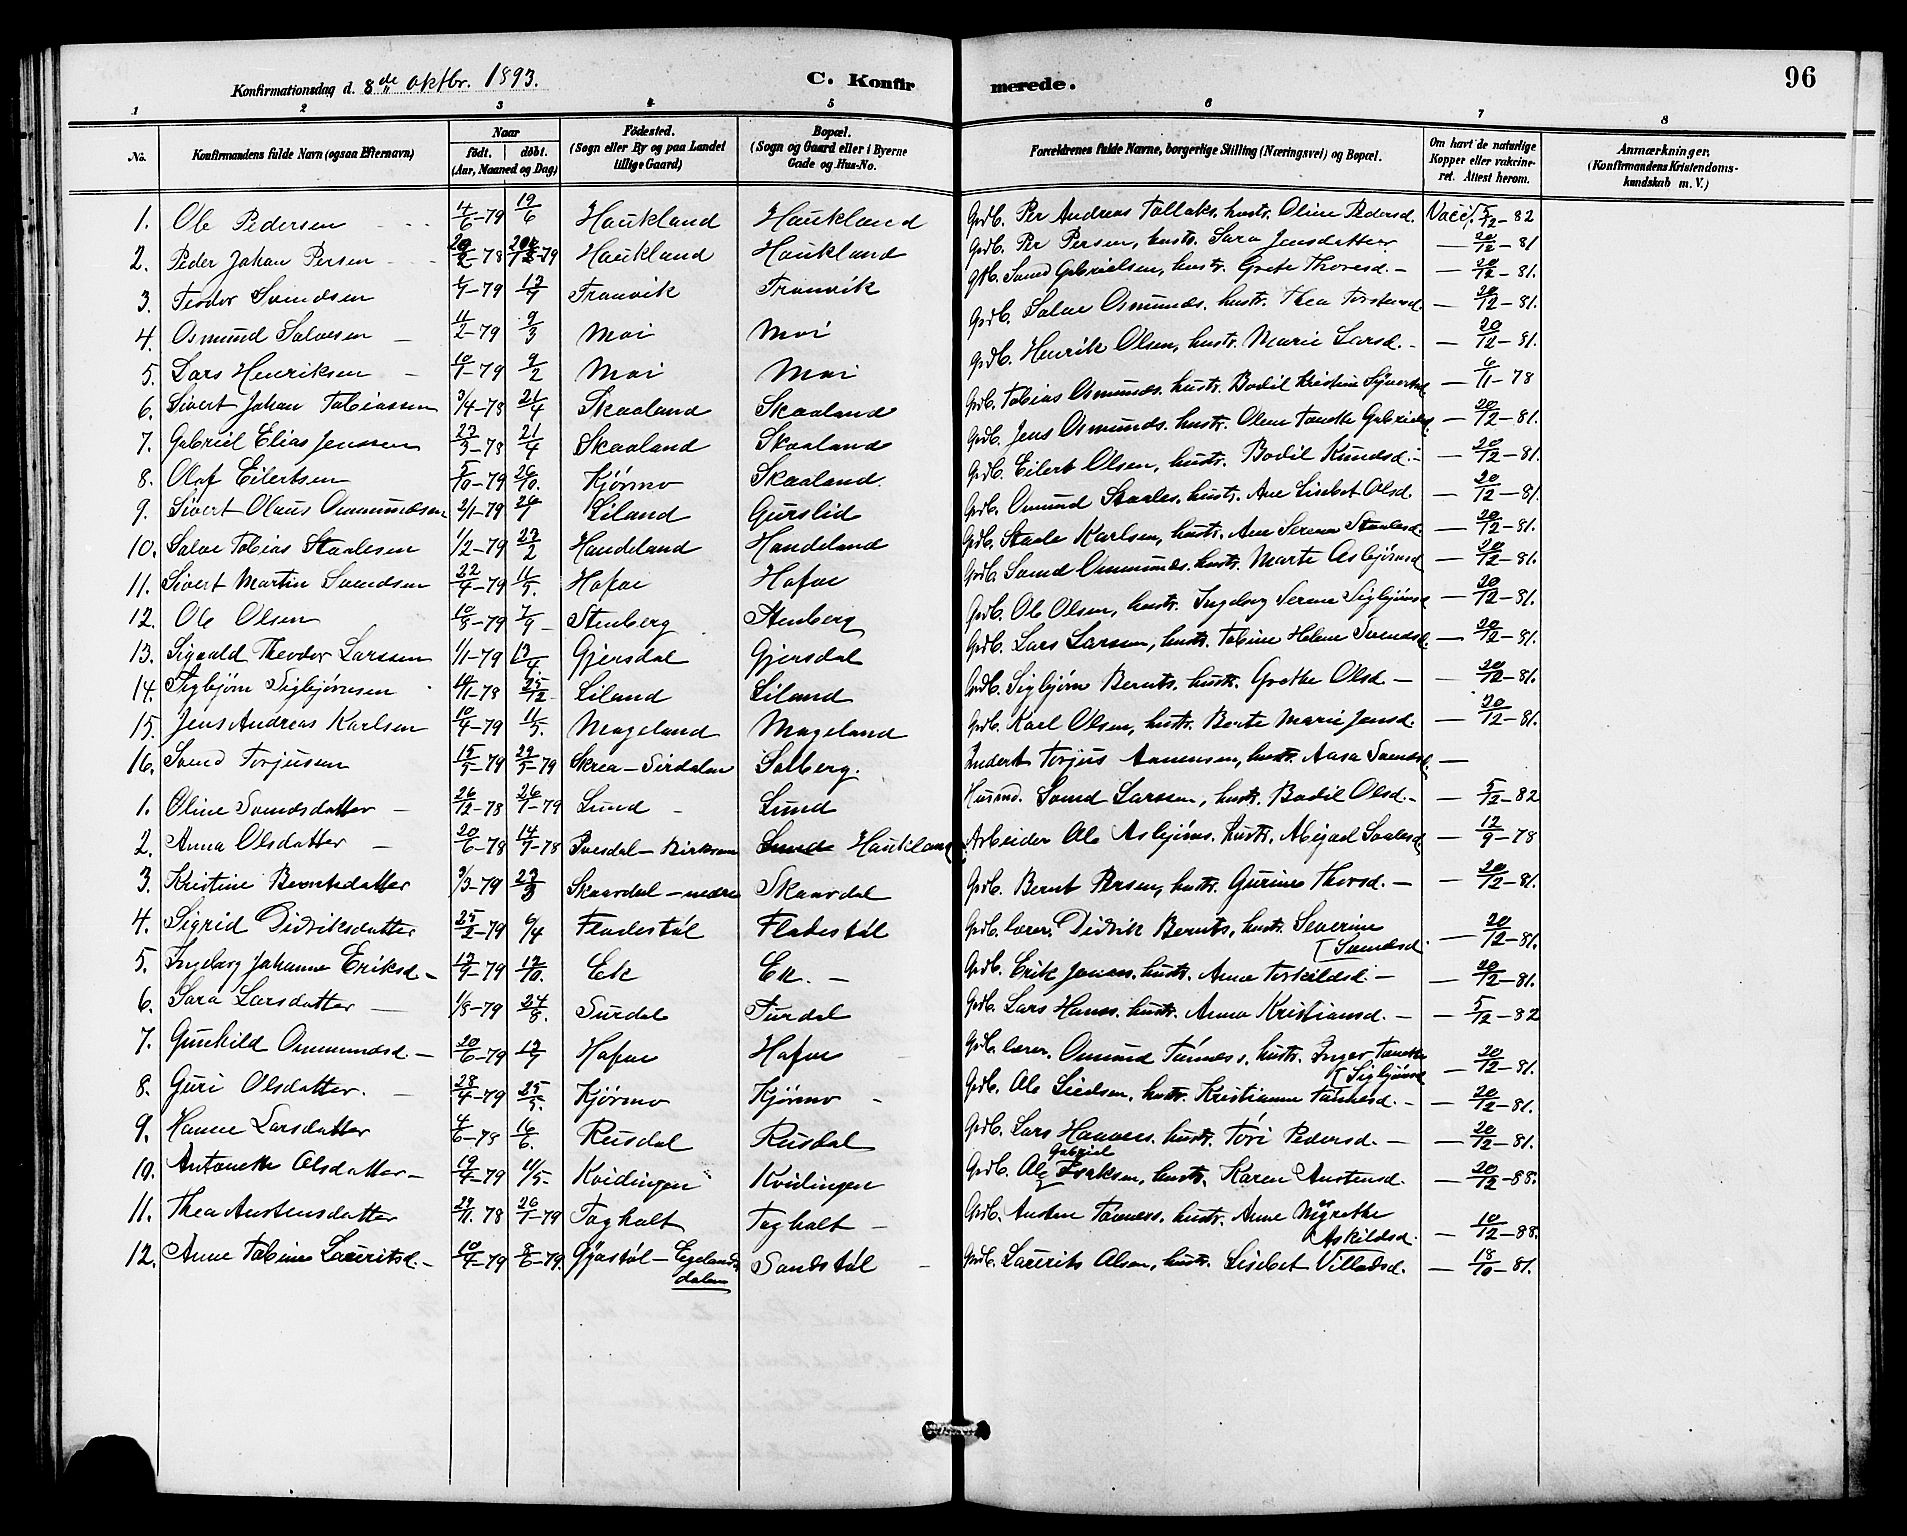 96
Konfirmationsdag d. 8de oktbr. 1893.
C. Konfirmerede.
1 2 3 4 5 6 7 8
No. Konfirmandens fulde Navn (ogsaa Efternavn) Naar födt. döbt. (Aar, Maaned og Dag) Födested. (Sogn eller By og paa Landet tillige Gaard) Bopæl. (Sogn og Gaard eller i Byerne Gade og Hus-No. Forældrenes fulde Navne, borgerlige Stilling (Næringsvei) og Bopæl. Om havt de naturlige Kopper eller vakcineret. Attest herom. Anmærkninger, (Konfirmandens Kristendomskundskab m. V.)
1. Ole Pedersen 4/6-79 19/6 Haukland Haukland Grdb. Per Andreas Tollaks. hustr. Oline Pedersd. Vacc. 5/12-82
2. Peder Johan Persen 78 79 Haukland Haukland Grdb. Per Persen, hustr. Sara Jensdatter — 20/12-81
3. Teodor Svendsen 79 Tronvik Tronvik Gdb. Svend Gabrielsen, hustr. Grete Thoresd. — 20/12-81.
4. Osmund Salvesen 11/2-79 9/3 Moi Moi Grdb. Salve Osmunds. hustr. Thea Torstensd. — 20/12-81.
5. Lars Henriksen 10/1-79 9/2 Moi Moi Grdb. Henrik Olsen, hustr. Marie Larsd. — 20/12-81.
6. Sivert Johan Tobiassen 3/4-78 21/4 Skaaland Skaaland Grdb. Tobias Osmunds. hustr. Bodil Kristine — 6/11-78
7. Gabriel Elias Jenssen 23/3-78 21/4 Skaaland Skaaland Grdb. Jens Osmunds. hustr. Olene Tonette Gabrielsd. — 20/12-81.
8. Olaf Eilertsen 5/10-79 26/10. Kjørmo Skaaland. Grdb. Eilert Olsen, hustr. Bodil Knudsd. — 20/12-81.
9. Sivert Olaus Ommundsen 2/1-79 26/1 Liland Gurslid Grdb. Omund Staales. hustr. Ane Lisebet Olsd. — 20/12-81.
10. Salve Tobias Staalesen 1/2-79 23/2 Handeland Handeland Grdb. Staale Karlsen, hustr. Ane Serene Staalesd. — 20/12-81.
11. Sivert Martin Svendsen 22/4-79 11/5. Hofoe Hofoe Grdb. Svend Ommunds. hustr. Marte Asbjørnsd — 20/12-81.
12. Ole Olsen 10/8-79 7/9 Stenberg Stenberg Grdb. Ole Olsen, hustr. Ingeborg Serene Sigbjørnsd — 20/12-81.
13. Sigvald Theodor Larssen 1/1-79 13/4 Gjersdal Gjersdal Grdb. Lars Larsen, hustr. Tobine Helene Svendsd. — 20/12-81.
14. Sigbjørn Sigbjørnsen 78 25/12 Liland Liland Grdb. Sigbjørn Bernts. hustr. Grethe Olsd. — 20/12-81.
15. Jens Andreas Karlsen 10/4-79 11/5. Mageland Mageland Grdb. Karl Olsen, hustr. Berte Marie Jensd. — 20/12-81.
16. Svend Torjusen 15/5-79 29/5-79 Skrea — Sirdalen Solberg. Inderst Torjus Aanensen, hustr. Aasa Svendsd. —
1. Oline Svendsdatter 26/12-78 26/1-79 Lund Lund Husmd. Svend Larssen, hustr. Bodil Olsd. — 5/12-82
2. Anna Olsdatter 20/6-78 14/7-78 Bjerkrem Haukland Arbeider Ole Asbjørns. hustr. Abigael — 12/9-78
3. Kristine Berntsdatter 3/3-79 23/3 Skaardal — nedre Skaardal Grdb. Bernt Persen, hustr. Gurine Thorsd. — 20/12-81.
4. Sigrid Didriksdatter 25/2-79 6/4 Fladestøl Fladestøl Grdb. lærer. Didrik Bernts, hustr. Severine
[Svendsd. — 20/12-81.
5. Ingeborg Johanne Eriksd. 79 12/10. Eik Eik. Grdb. Erik Jonass. hustr. Anne Torkildsd. — 20/12-81.
6. Sara Larsdatter 1/8-79 24/8. Surdal Surdal Grdb. Lars Hanss. hustr. Anne Kristiansd. — 5/12-82
7. Gunhild Ommundsd. 20/6-79 13/7 Hofoe Hofoe Grdb. lærer. Omund Tønness, hustr. Inger Tonette
[Sigbjørnsd — 20/12-81.
8. Guri Olsdatter. 28/4-79 25/5. Kjørmo Kjørmo Grdb. Ole hustr. Kristianne Tønnesd. — 20/12-81.
9. Hanne Larsdatter 4/6-78 16/6. Rusdal Rusdal Grdb. Lars Hanness. hustr. Tori Pedersd. — 20/12-81.
10. Antonette Olsdatter 19/4-79 11/5 Kvidingen Kvidingen Grdb. Ole Gabriel hustr. Karen Austensd. — 20/12-88.
11. Thea Austensdatter 29/11. 78 26/1-79 Toghalt Toghalt Grdb. Austen Tønness. hustr. Anne Mgrethe
Askildsd. — 10/12-88.
12. Anne Tobine Lauritsd. 10/4-79 8/6-79. Gyastøl — Egelands
dalen Sandstøl Grdb. Laurits Olsen, hustr. Lisebet Villadsd. — 18/10-81.